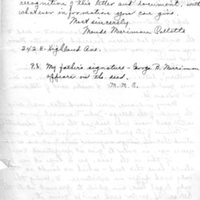 recognition of this letter and document, with
whatever information you can give.
Most sincerely
Maude Merriman
242 E. Highland Ave.
P.S. My father's signature - George B. Merriman
appears on the deed.
M. M.